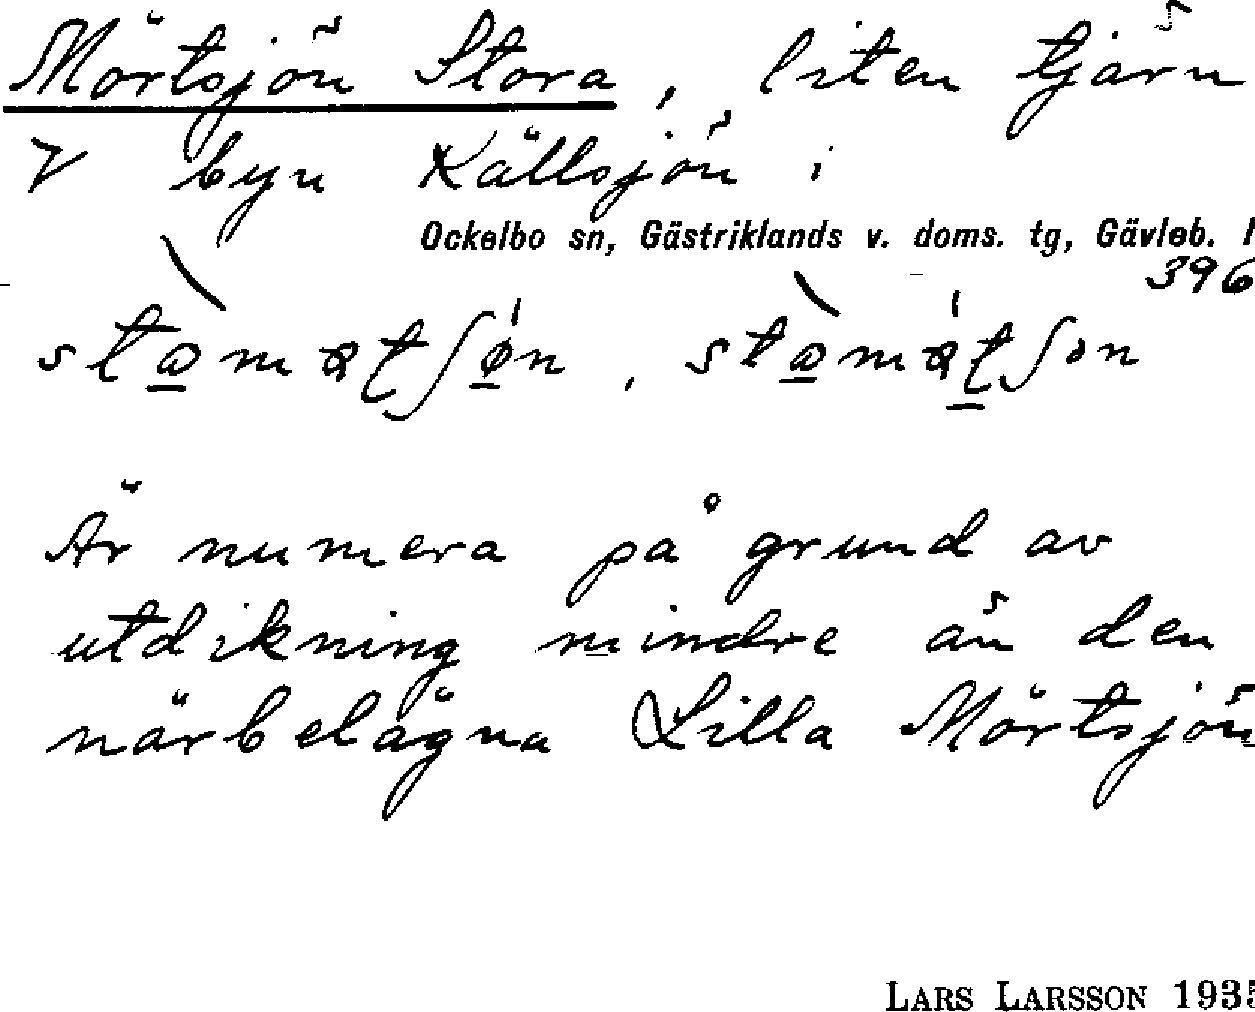 Mörtsjön Stora, liten tjärn
V byn Källsjön i
Ockelbo sn, Gästriklands v. doms. tg, Gävleb. l
396
Är numera på grund av
utdikning mindre än den
närbelägna Lilla Mörtsjön
LARS LARSSON 1935